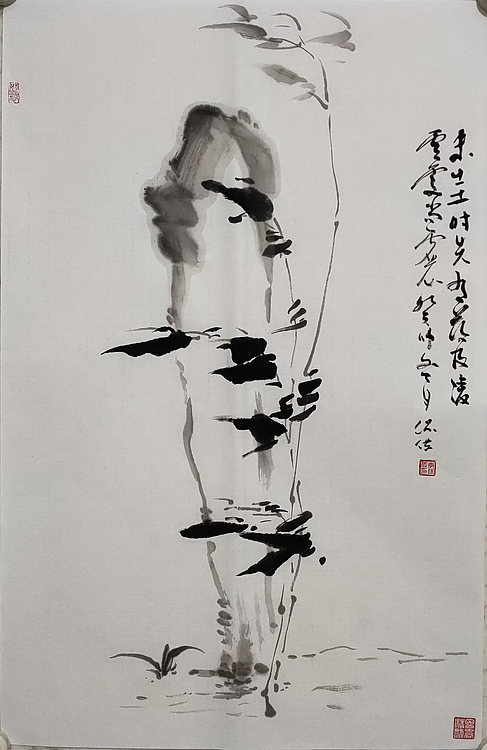 未出土时先有节及凌
雲處尚虚心癸卯冬月